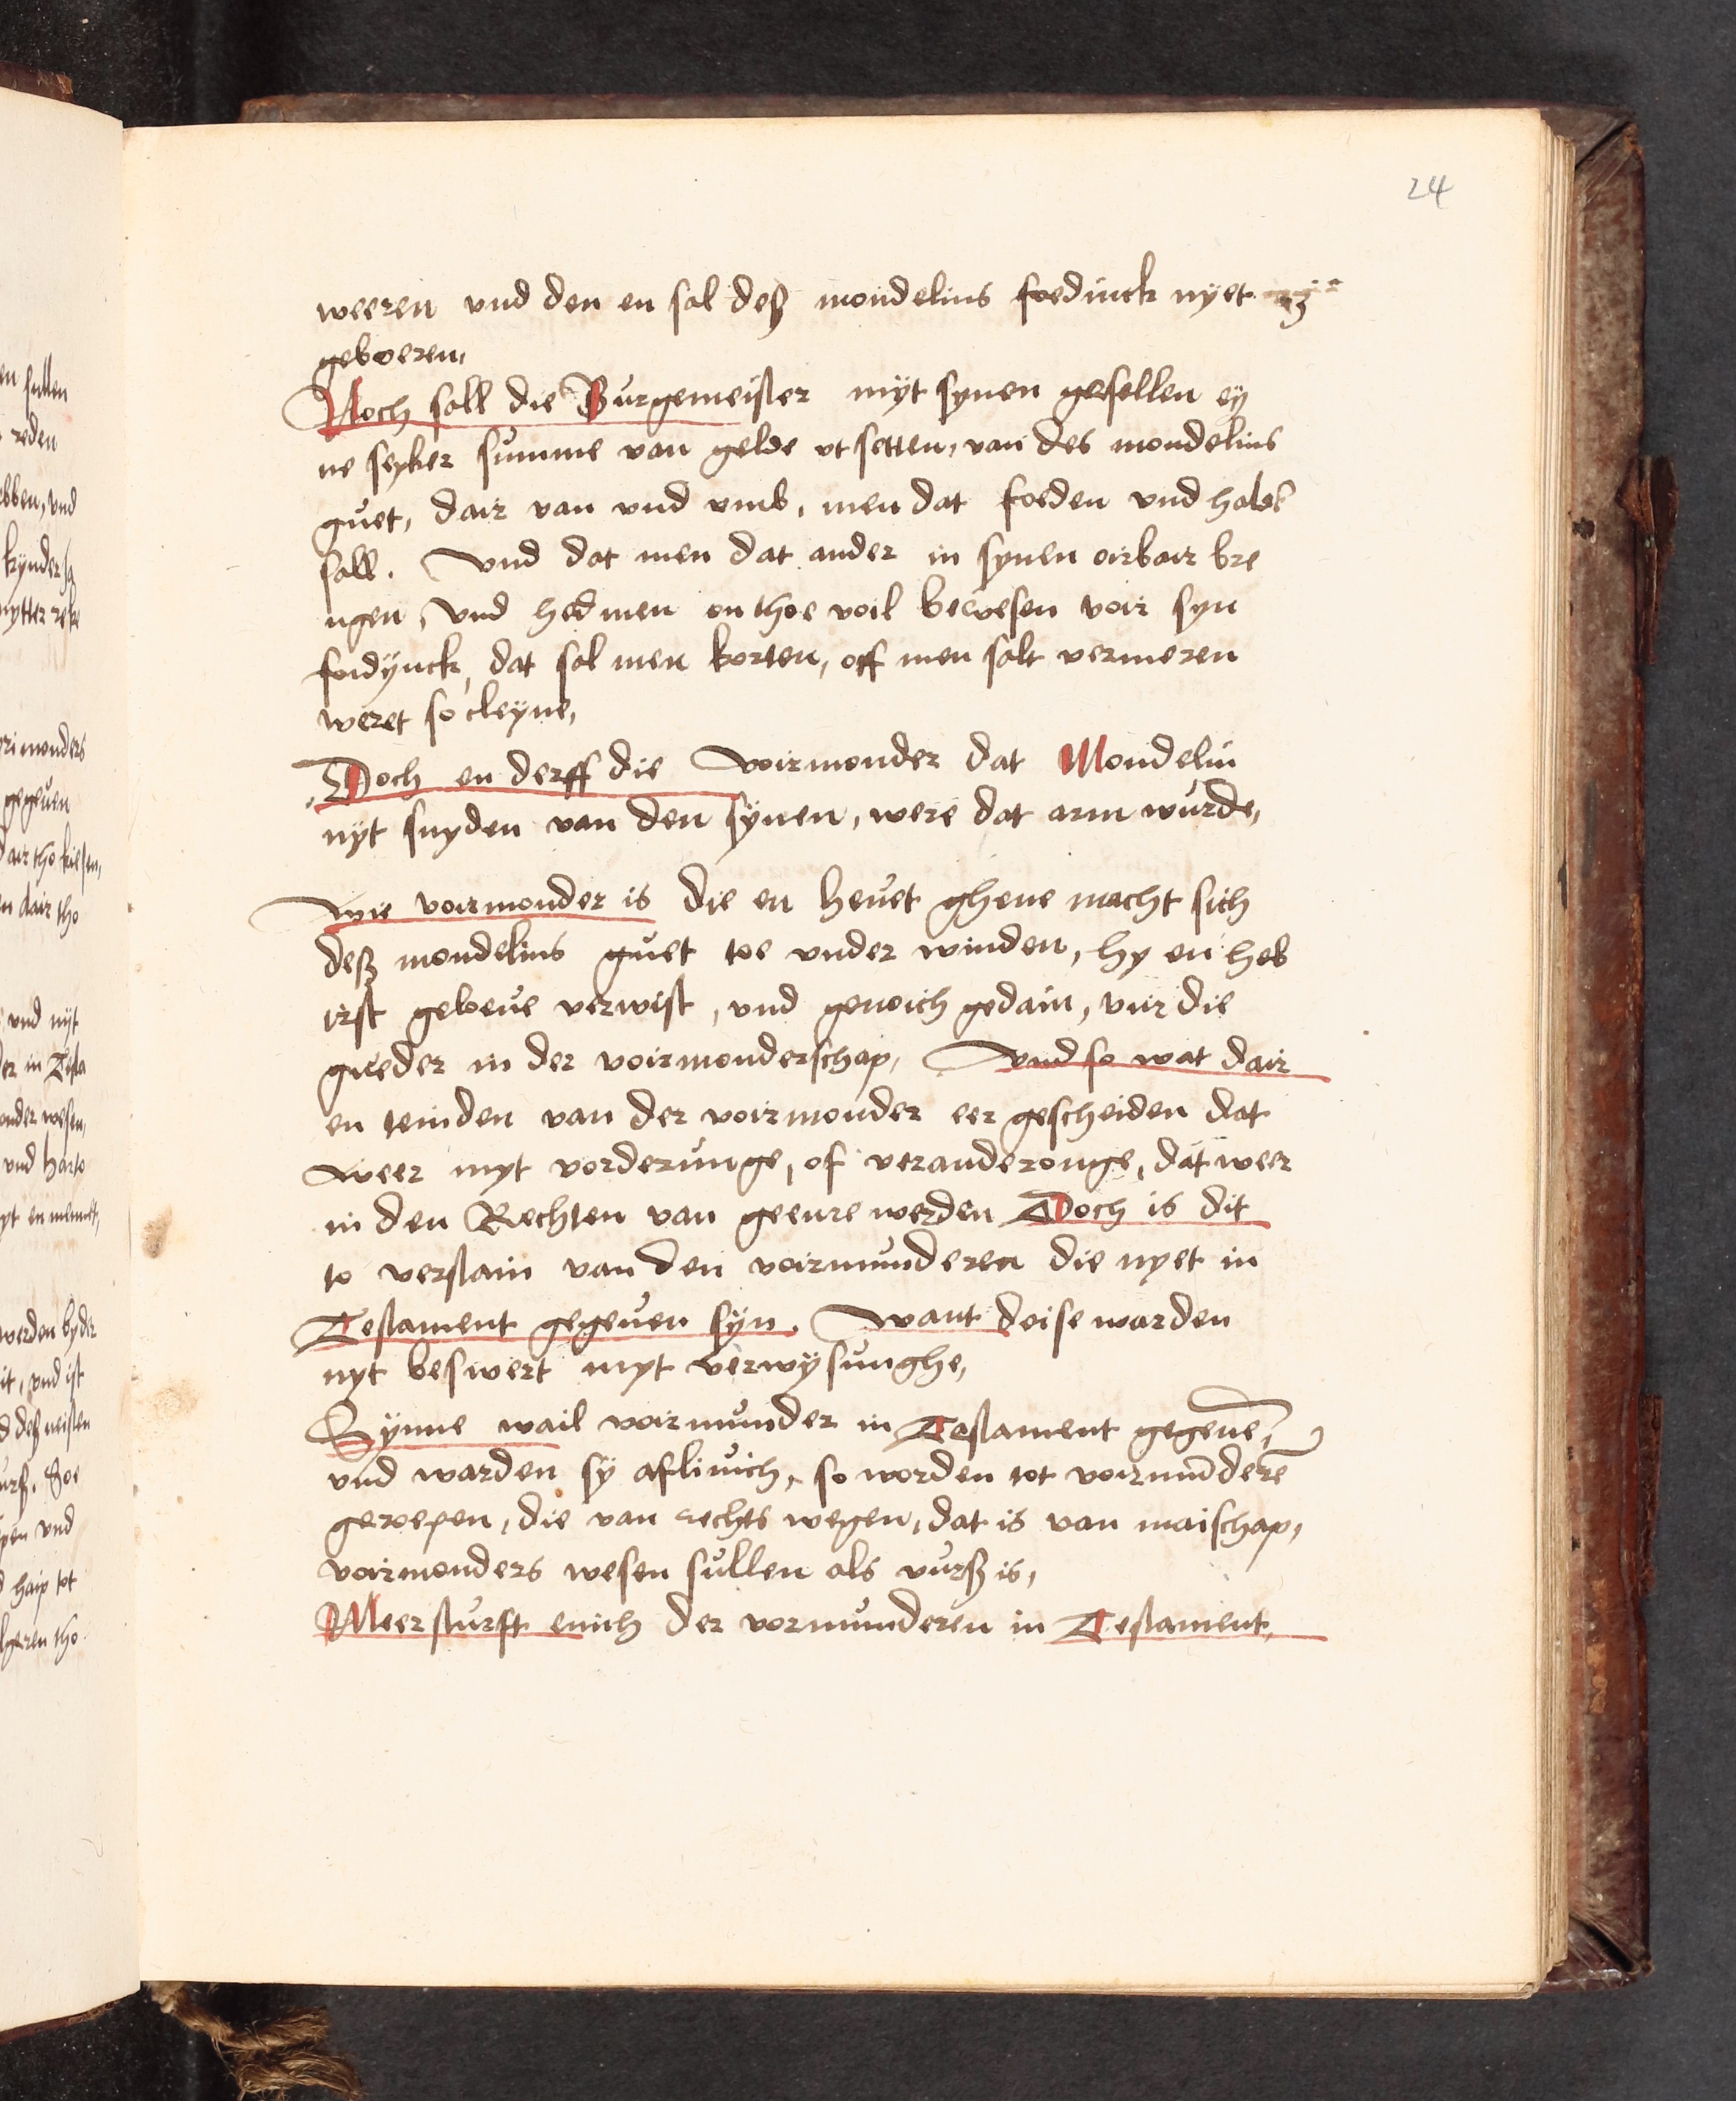 24
weeren vnd den en sal deß mondelins foedinck nyet
geboeren,
Noch sall die Burgemeister myt synen gesellen ey
ne seyker summe van gelde vt setten, van des mondelins
guet, dair van vnd vmb, men dat foeden vnd
sall. Vnd dat men dat ander in synen oirbair bre
ngen, Vnd hed men on thoe voil bewesen voir syn
foidÿnck, dat sal men korten, off men salt vermeren
weret so cleyne,
Doch en derff die Voirmonder dat Mondelin
nyt snyden van den sÿnen, were dat arm wurde,
Wie voirmonder is die en heuet ghene macht sich
deß mondelins guet toe vnder winden, hy en heb
irst geloeue verwist, vnd genoich gedain, vur die
gueder in der voirmonderschap, Vnd so wat dair
en teinden van der voirmonder eer gescheiden dat
weer myt vorderunge, of veranderonge, dat weer
in den Rechten van geenre werden Doch is dit
to verstain van den voirmunderen die nyet in
Testament gegeuen sÿn. Want deise warden
nyt beswert myt verwÿsunghe,
Sÿnne wail voirmunder in Testament gegeuē,
vnd warden sÿ afliuich, so worden tot voirmūderē
geroepen, die van rechts wegen, dat is van maischap,
voirmonders wesen sullen als vurß is,
Meer sturft enich der vormunderen in Testament,